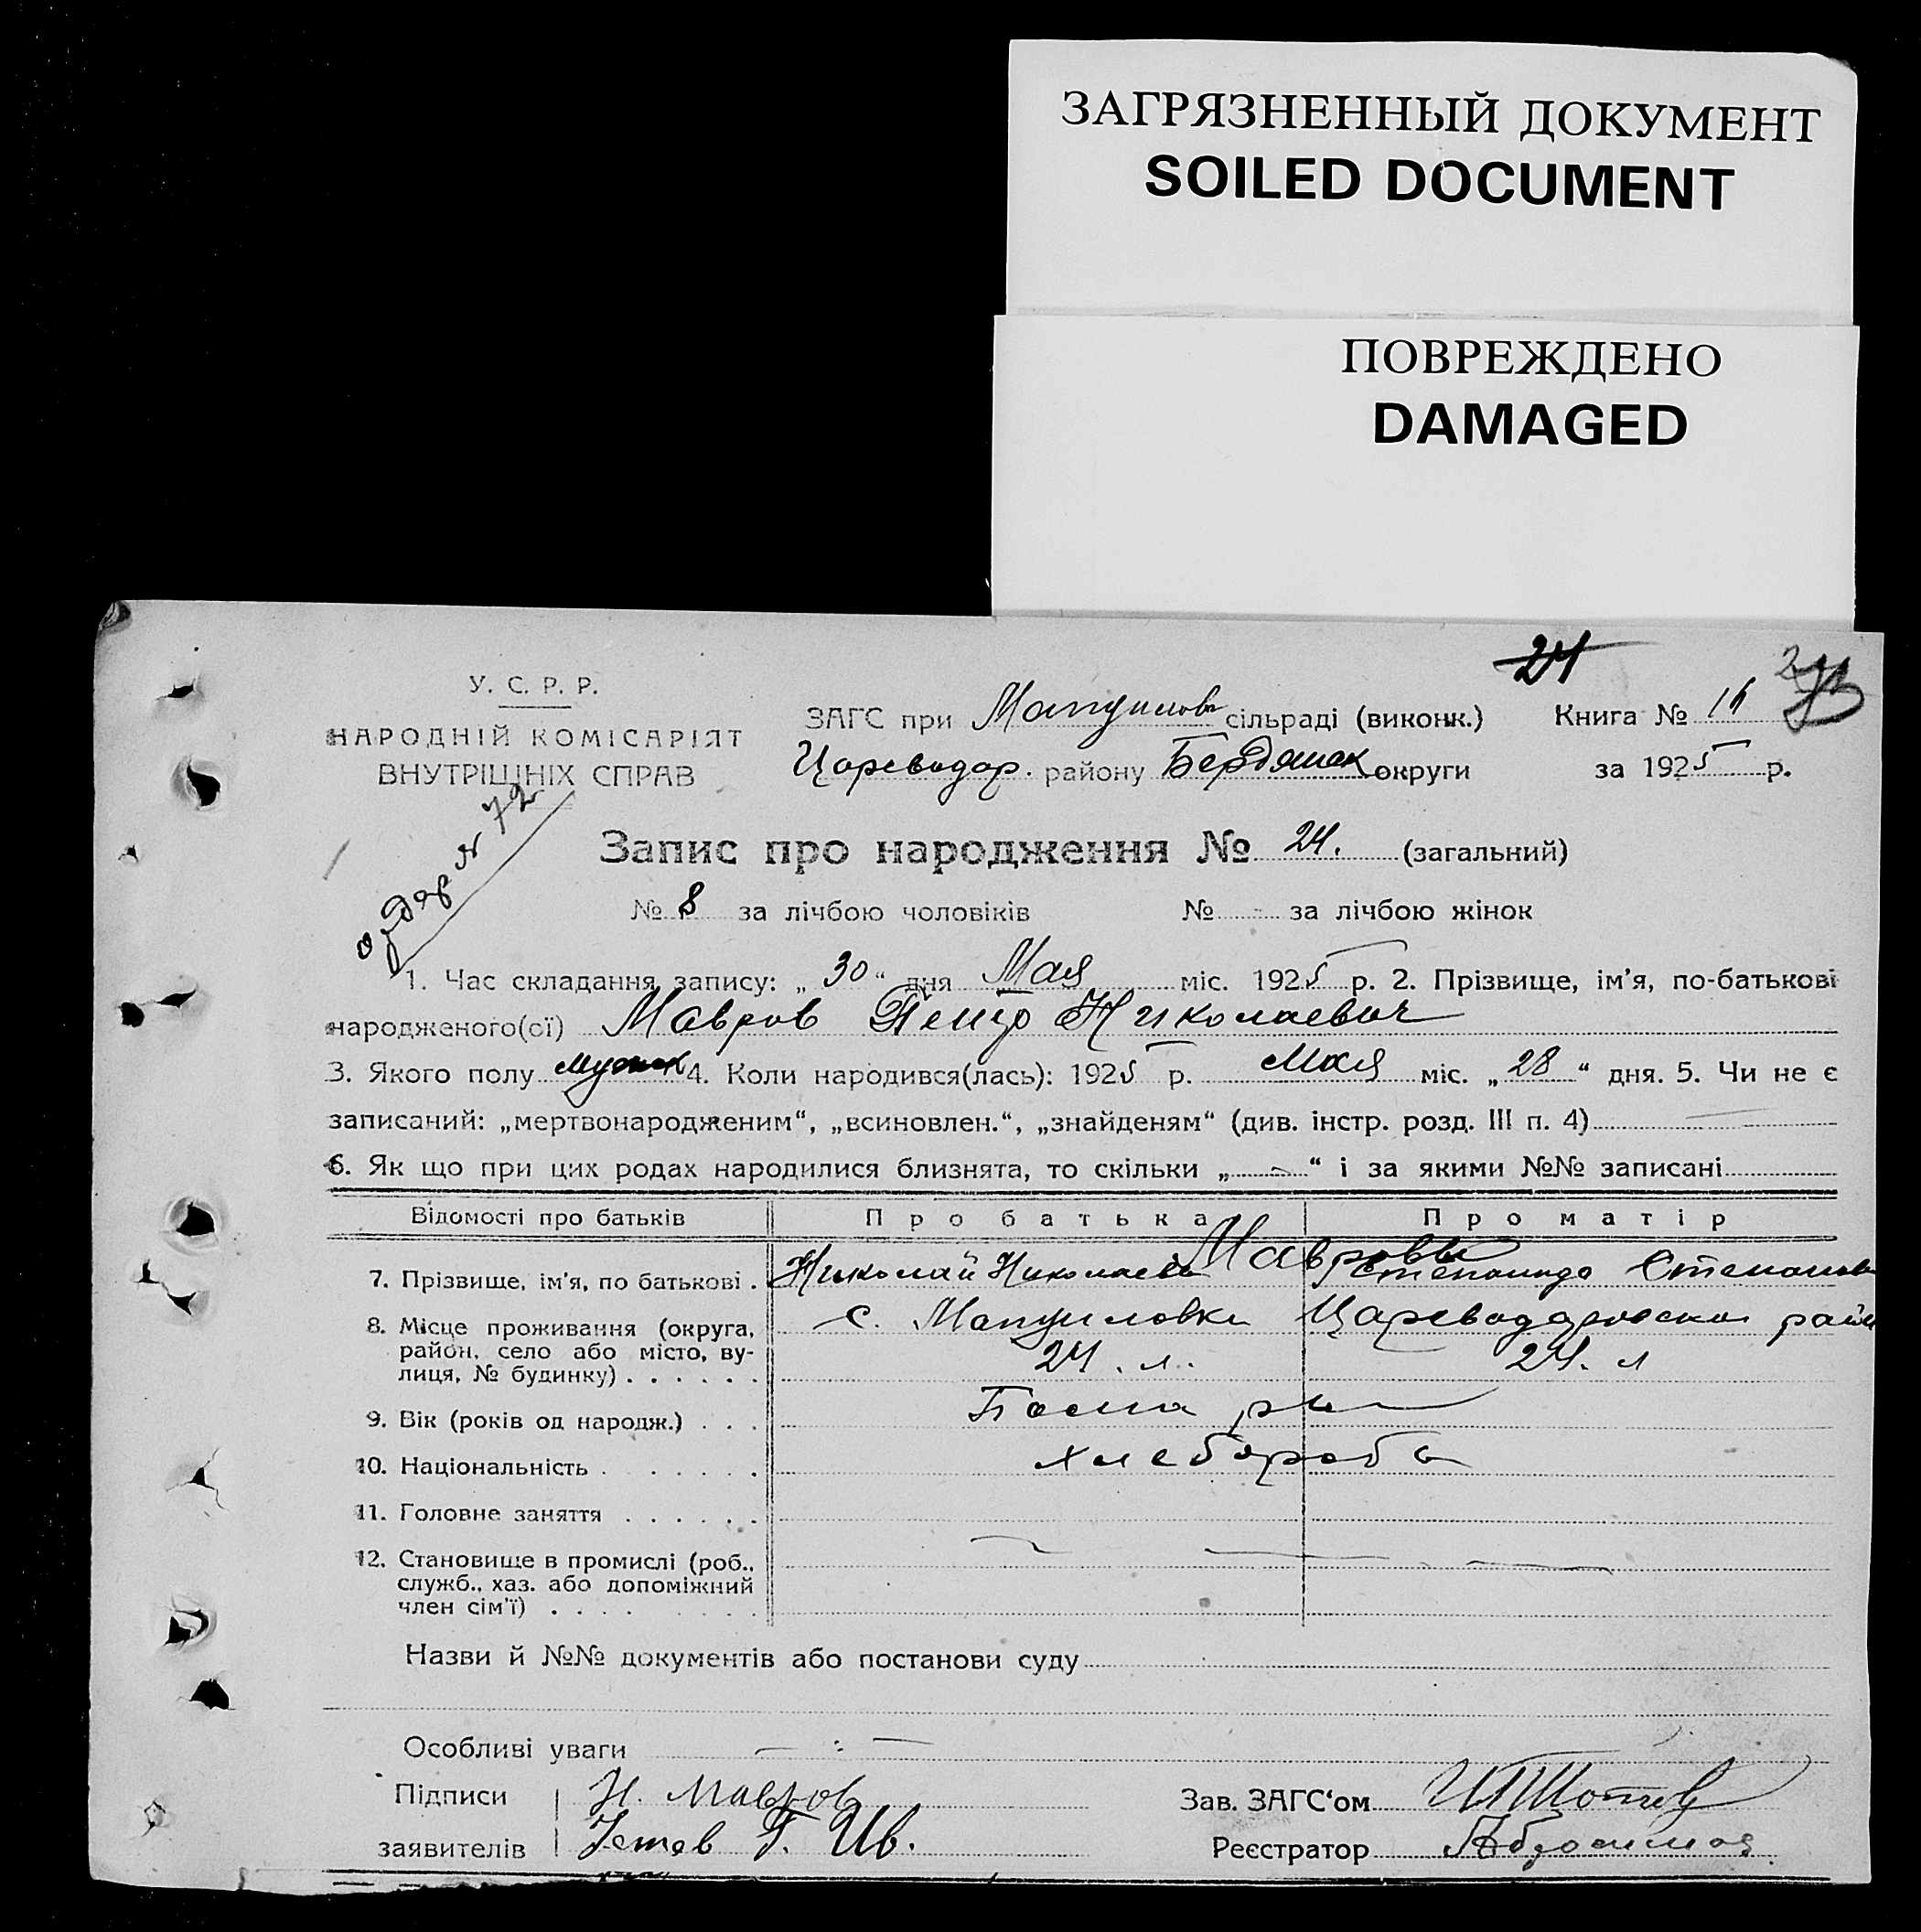 ЗАГРЯЗНЕННЫЙ ДОКУМЕНТ
SOILED DOCUMENT
ПОВРЕЖДЕНО
DAMAGED
24
У. С. Р. Р.
НАРОДНІЙ КОМІСАРІЯТ
ВНУТРІШНІХ СПРАВ
ЗАГС при сільраді (виконк.) Книга №
Цареводар. району Бердянск округи за 1925 р.
Запис про народження № 24. (загальний)
№ 8 за лічбою чоловіків № - за лічбою жінок
1. Час складання запису: „30“ дня Мая міс. 1925 р. 2. Прізвище, ім'я, по-батькові
народженого(ої) Мавров Николаевич
3. Якого полу мужск 4. Коли народився(лась): 1925 р. Мая міс. „28“ дня. 5. Чи не є
записаний: „мертвонародженим“, „всиновлен.“, „знайденям“ (див. інстр. розд. III п. 4)
6. Як що при цих родах народилися близнята, то скільки „ - “ і за якими №№ записані
Відомості про батьків Про батька Про матір
Мавровы
7. Прізвище, ім'я, по батькові . Николай Николаев Степанида Степанов
8. Місце проживання (округа, район, село або місто, вулиця, № будинку) . . . . . . с. Цареводаровского район
24. л. 24. л
9. Вік (років од народж.) . . .
10. Національність . . . . . . хлебороби
11. Головне заняття . . . . . .
12. Становище в промислі (роб.,
служб., хаз. або допоміжний
член сім'ї) . . . .
Назви й №№ документів або постанови суду
Особливі уваги — : —
Підписи Н. Мавров Зав. ЗАГС‘ом
заявителів Г. Ив. Реєстратор